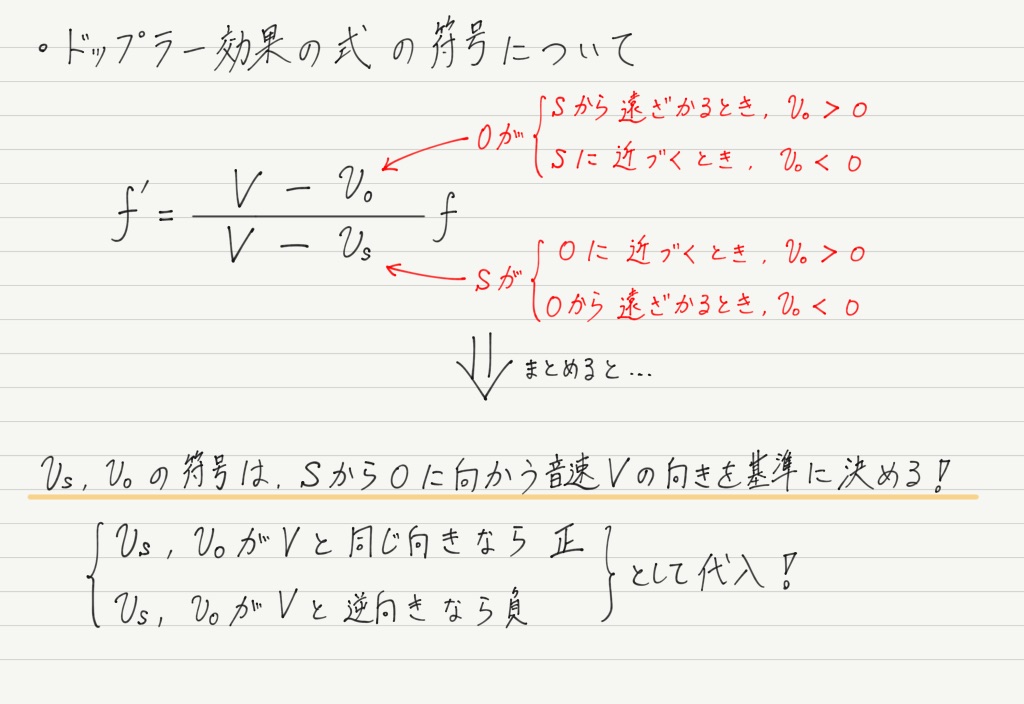 ・ドップラー効果の式の符号について
Oが { Sから遠ざかるとき, v₀ > 0
Sに近づくとき, v₀ < 0
f' = (V - v₀) / (V - vs) f
Sが { Oに近づくとき, v₀ > 0
Oから遠ざかるとき, v₀ < 0
⇓ まとめると…
vs, v₀の符号は, SからOに向かう音速Vの向きを基準に決める!
{ vs, v₀がVと同じ向きなら 正
vs, v₀がVと逆向きなら負 } として代入!